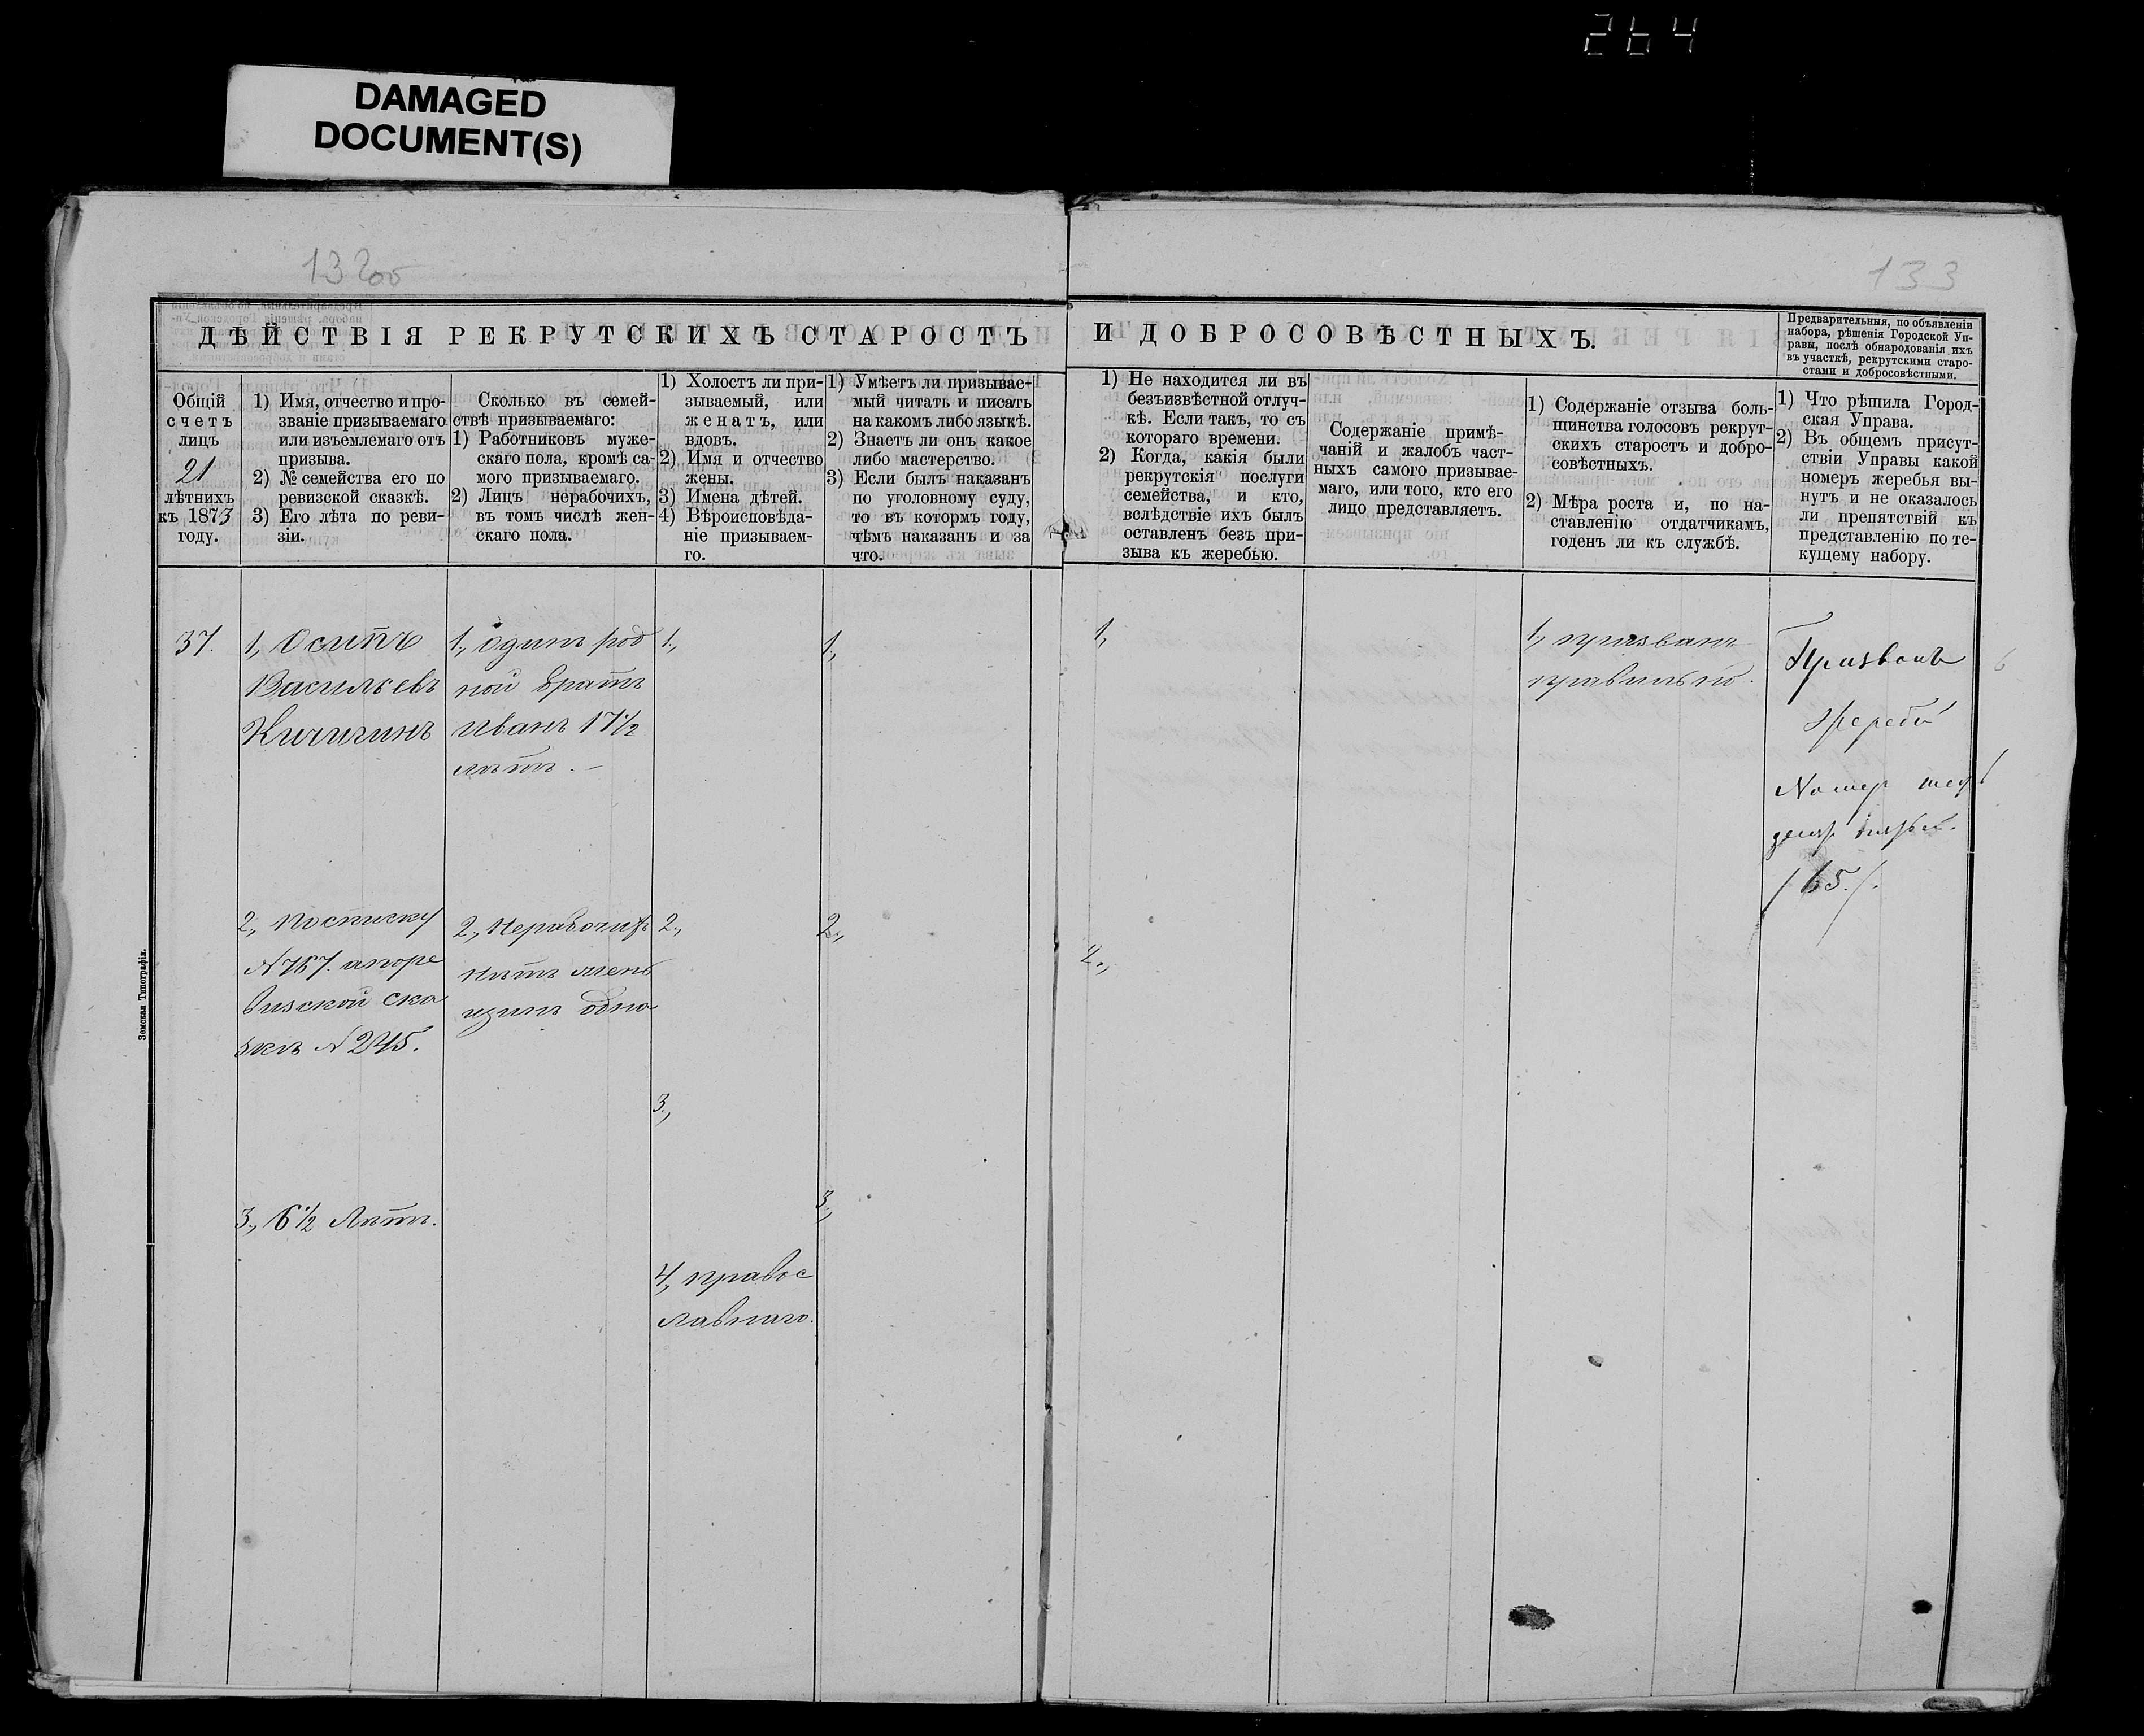 264
DAMAGED
DOCUMENT(S)
132об
133
ДѢЙСТВІЯ РЕКРУТСКИХЪ СТАРОСТЪ
И ДОБРОСОВѢСТНЫХЪ.
Предварительныя, по объявленіи
набора, рѣшенія Городской Уп-
равы, послѣ обнародованія ихъ
въ участкѣ, рекрутскими старо-
стами и добросовѣстными.
Общій
счетъ
лицъ
21
лѣтнихъ
къ 1873
году.
1) Имя, отчество и про-
званіе призываемаго
или изъемлемаго отъ
призыва.
2) № семейства его по
ревизской сказкѣ.
3) Его лѣта по реви-
зіи.
Сколько въ семей-
ствѣ призываемаго:
1) Работниковъ муже-
скаго пола, кромѣ са-
мого призываемаго.
2) Лицъ нерабочихъ,
въ томъ числѣ жен-
скаго пола.
1) Холостъ ли при-
зываемый, или
женатъ, или
вдовъ.
2) Имя и отчество
жены.
3) Имена дѣтей.
4) Вѣроисповѣда-
ніе призываем-
го.
1) Умѣетъ ли призывае-
мый читать и писать
на какомъ либо языкѣ.
2) Знаетъ ли онъ какое
либо мастерство.
3) Если былъ наказанъ
по уголовному суду,
то въ которм году,
чѣмъ наказанъ и за
что.
1) Не находится ли въ
безъизвѣстной отлуч-
кѣ. Если такъ, то съ
котораго времени.
2) Когда, какія были
рекрутскія послуги
семейства, и кто,
вслѣдствіе ихъ былъ
оставленъ безъ при-
зыва къ жеребью.
Содержаніе примѣ-
чаній и жалобъ част-
ныхъ самого призывае-
маго, или того, кто его
лицо представляетъ.
1) Содержаніе отзыва боль-
шинства голосовъ рекрут-
скихъ старостъ и добро-
совѣстныхъ.
2) Мѣра роста и, по на-
ставленію отдатчикамъ,
годенъ ли къ службѣ.
1) Что рѣшила Город-
ская Управа.
2) Въ общемъ присут-
ствіи Управы какой
номеръ жеребья вы-
нутъ и не оказалось
ли препятствій къ
представленію по те-
кущему набору.
37.
1, Осипъ
Васильевъ
Кичигинъ
2, По списку
№767. а по ре
визской ска
зкѣ №245.
3, 6½ Лѣтъ.
1, Одинъ род
ной братъ
Иванъ 17½
лѣтъ. –
2, Нерабочихъ
нѣтъ жен
щинъ одна
1,
2,
3,
4, правос
лавнаго.
1,
2,
3,
1,
2,
1, призванъ
правильно.
Призванъ
Жребій
Номер
65.
Земская Типографія.